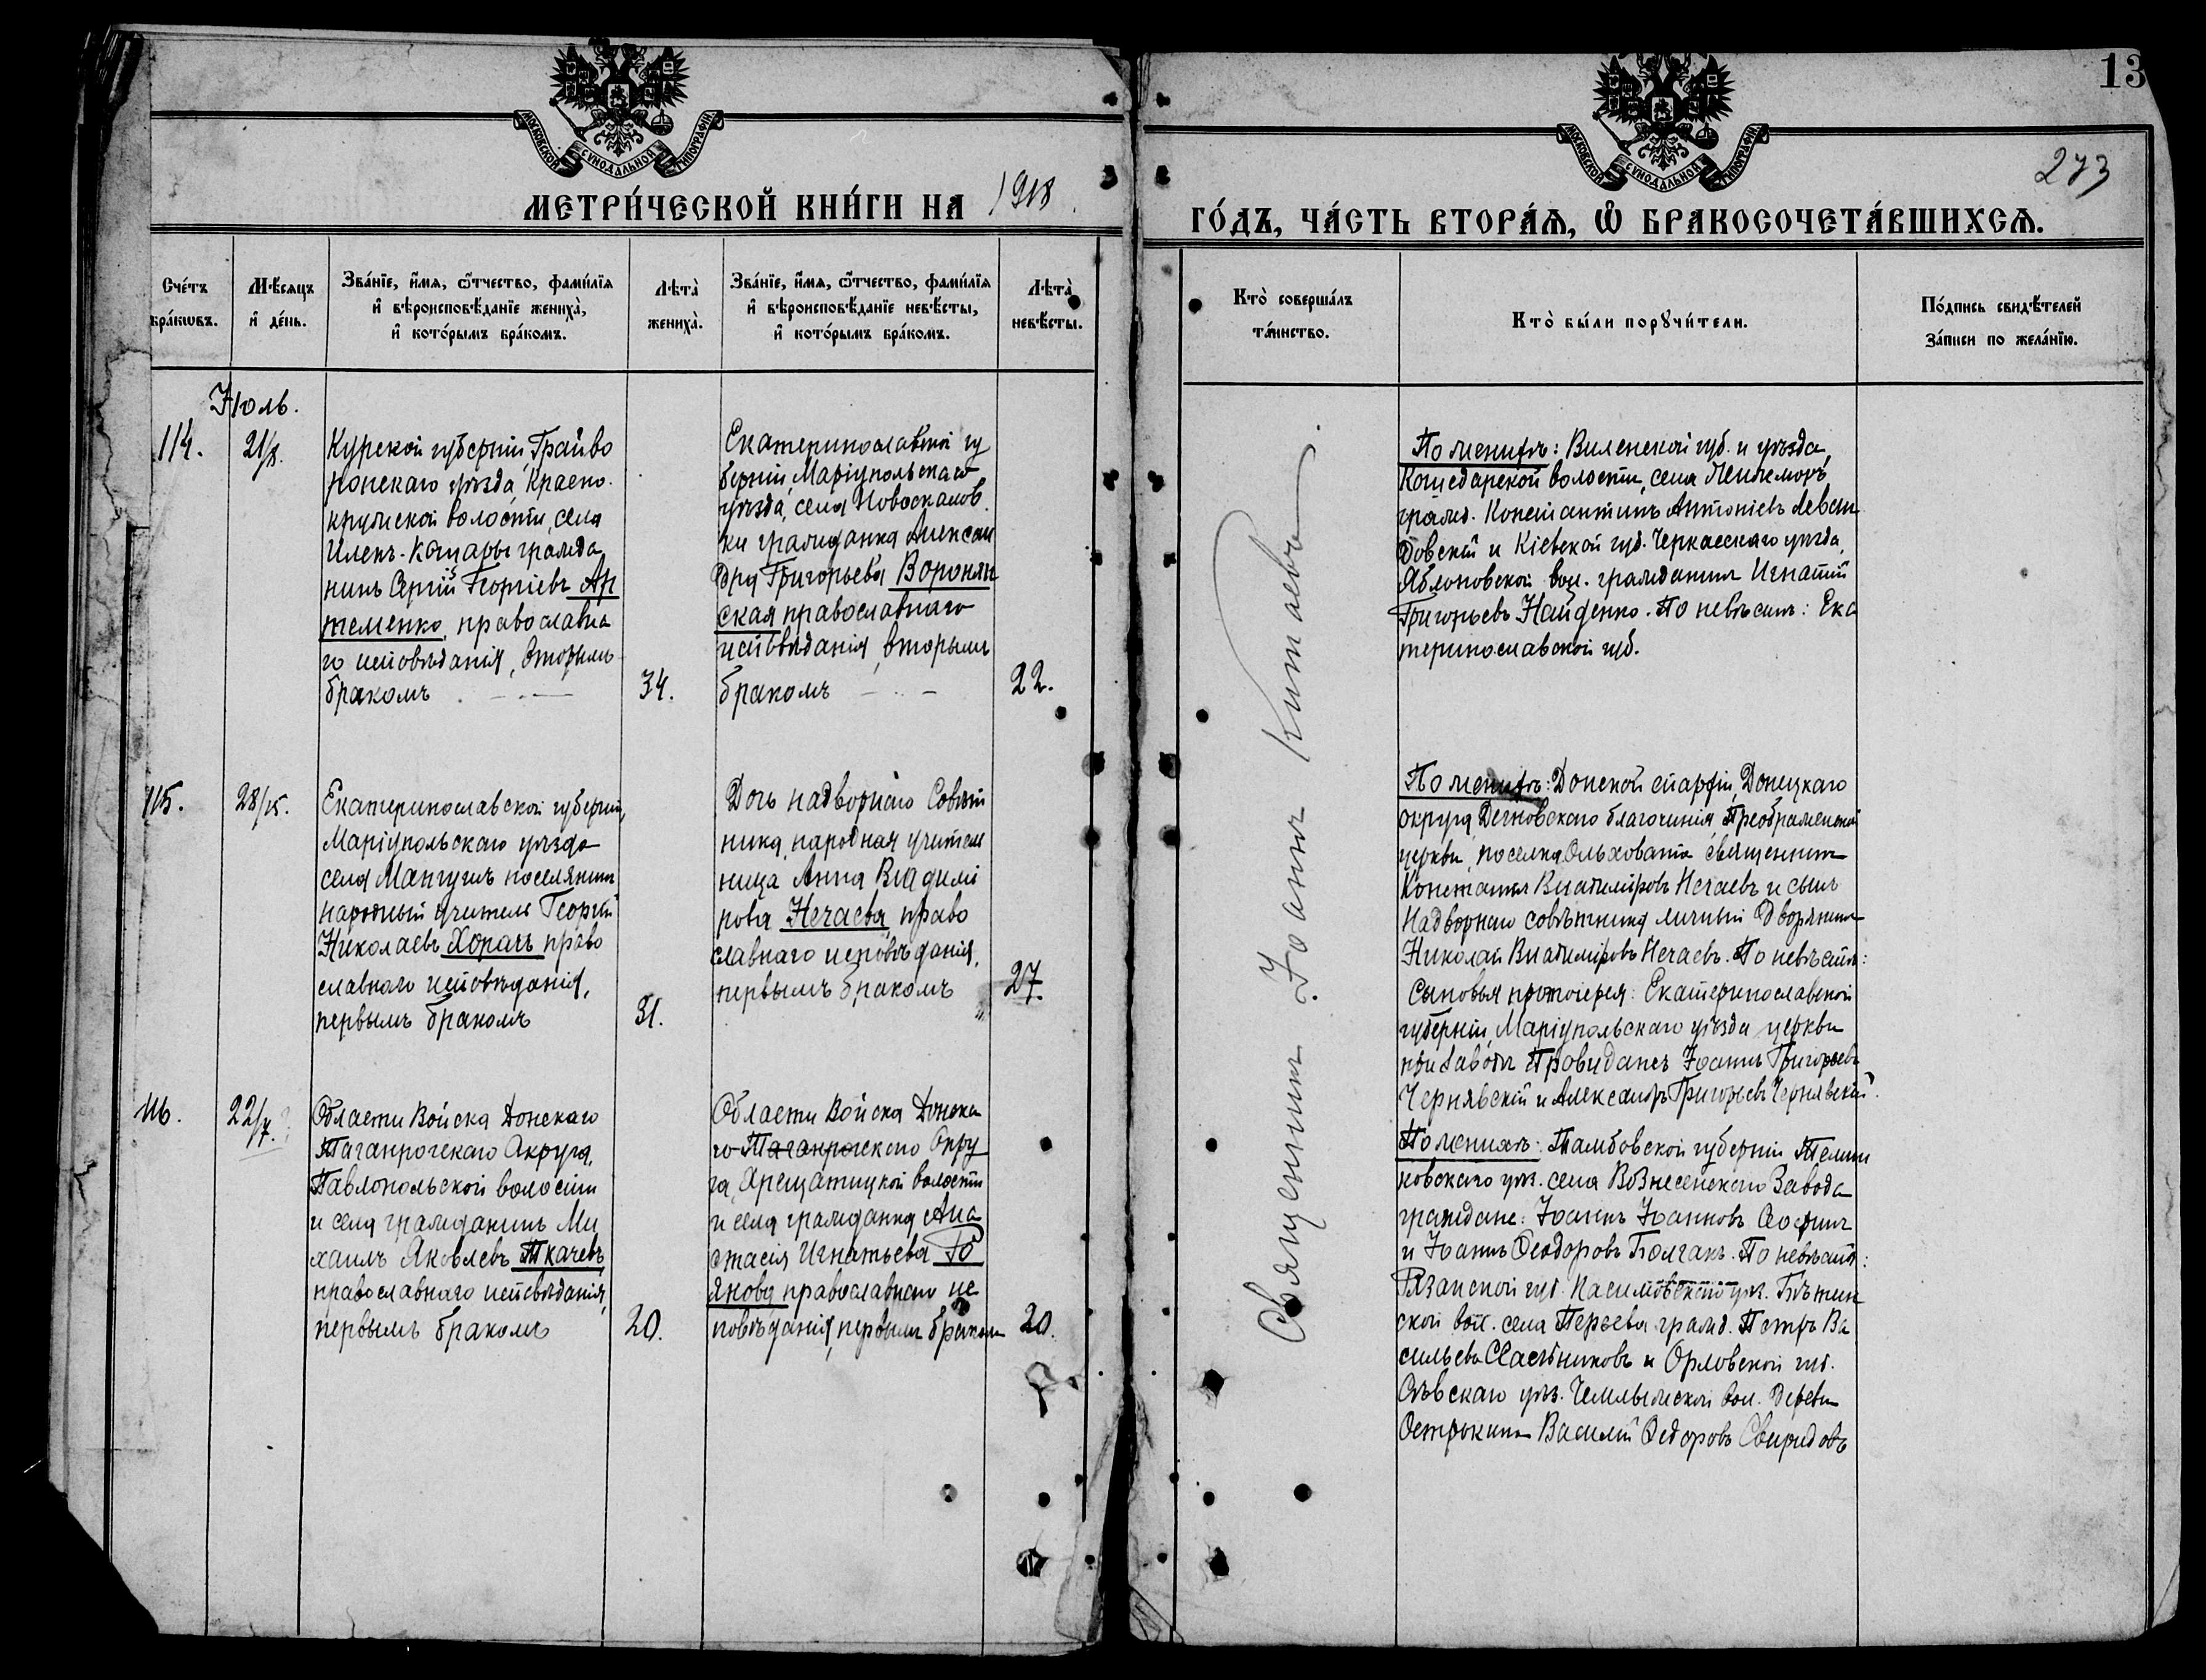 13
273
МОСКОВСКОЙ СѴНОДАЛЬНОЙ ТИПОГРАФІИ
МОСКОВСКОЙ СѴНОДАЛЬНОЙ ТИПОГРАФІИ
МЕТРИ́ЧЕСКОЙ КНИ́ГИ НА 1918
ГО́ДЪ, ЧА́СТЬ ВТОРА́Ѧ, Ѡ БРАКОСОЧЕТА́ВШИХСѦ.
Сче́тъ
бра́кѡвъ.
Мѣ́сяцъ
и҆ де́нь.
Зва́нїе, и҆́мѧ, ѻ҆́тчество, фами́лїѧ
и҆ вѣроисповѣ́данїе жениха̀,
и҆ кото́рымъ бра́комъ.
Лѣта̀
жениха̀.
Зва́нїе, и҆́мѧ, ѻ҆́тчество, фами́лїѧ
и҆ вѣроисповѣ́данїе невѣ́сты,
и҆ кото́рымъ бра́комъ.
Лѣта̀
невѣ́сты.
Кто̀ соверша́лъ
та́инство.
Кто̀ бы́ли порꙋчи́тели.
По́дпись свидѣ́телей
за́писи по жела́нїю.
Іюль.
114.
21/8.
Курской губерніи, Грайво
ронскаго уѣзда, Красно
волости, села
Илекъ-Кошары гражда
нинъ Сергій Георгіевъ Ар
теменко, православна
го исповѣданія, вторымъ
бракомъ
34.
Екатеринославской гу
берніи, Маріупольскаго
уѣзда, села
ки гражданка Алексан
дра Григорьева Воронян
ская православнаго
исповѣданія, вторымъ
бракомъ
22.
По женихѣ: Виленской губ. и уѣзда,
волости, села
гражд. Константинъ Антоніевъ Леван
довскій и Кіевской губ. Черкасскаго уѣзда,
Яблоновской вол. гражданинъ Игнатій
Григорьевъ Найденко. По невѣстѣ: Ека
теринославской губ.
115.
28/15.
Екатеринославской губерніи,
Маріупольскаго уѣзда
села Мангушъ поселянинъ
народный учитель Георгій
Николаевъ Хорачъ право
славнаго исповѣданія,
первымъ бракомъ
31.
Дочь надворнаго Совѣт
ника, народная учитель
ница Анна Владимі
рова Нечаева, право
славнаго исповѣданія,
первымъ бракомъ
27.
По женихѣ: Донской епархіи, Донецкаго
округа, благочинія, Преображенской
церкви, поселка Ольховата священникъ
Константинъ Владиміровъ Нечаевъ и сынъ
Надворнаго совѣтника личный Дворянинъ
Николай Владиміровъ Нечаевъ. По невѣстѣ:
Сыновья протоіерея: Екатеринославской
губерніи, Маріупольскаго уѣзда церкви
при Заводѣ Провидансъ Іоаннъ Григорьевъ
Чернявскій и Александръ Григорьевъ Чернявскій.
116.
22/7.
Области Войска Донскаго
Таганрогскаго Округа,
Павлопольской волости
и села гражданинъ Ми
хаилъ Яковлевъ Ткачевъ,
православнаго исповѣданія,
первымъ бракомъ
20.
Области Войска Донска
го Таганрогскаго Окру
га, волости
и села гражданка Ана
стасія Игнатьева Го
янова православнаго ис
повѣданія, первымъ бракомъ
20.
По женихѣ: Тамбовской губерніи Темни
ковскаго уѣз. села Вознесенскаго Завода
граждане: Іоаннъ Іоанновъ
и Іоаннъ Ѳеодоровъ. По невѣстѣ:
Рязанской губ. Касимовскаго уѣз.
ской вол. села гражд. Петръ Ва
сильевъ и Орловской губ.
Сѣвскаго уѣз. вол. деревни
Василій Ѳедоровъ Свиридовъ
Священникъ Іоаннъ Китаевъ